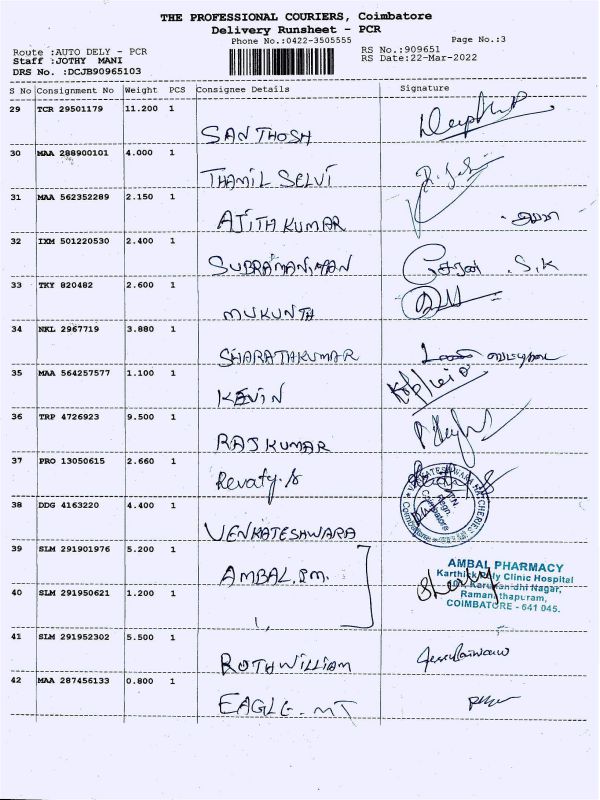 THE PROFESSIONAL COURIERS, Coimbatore
Delivery Runsheet - PCR
Phone No.:0422-3505555 Page No.:3
Route :AUTO DELY - PCR RS No.:909651
Staff :JOTHY MANI RS Date:22-Mar-2022
DRS No. :DCJB90965103
S No Consignment No Weight PCS Consignee Details Signature
29 TCR 29501179 11.200 1
SANTHOSH
30 MAA 288900101 4.000 1
THAMIL SELVI
31 MAA 562352289 2.150 1
AJITH KUMAR
32 IXM 501220530 2.400 1
SUBRAMANIYAN சேரன் .S.K
33 TKY 820482 2.600 1
MUKUNTH
34 NKL 2967719 3.880 1
SHARATHKUMAR
35 MAA 564257577 1.100 1
KEVIN
36 TRP 4726923 9.500 1
RAJKUMAR
37 PRO 13050615 2.660 1
Revathy.S
VENKATESHWARA MATCHERIES
Coimbatore
38 DDG 4163220 4.400 1
VENKATESHWARA
39 SLM 291901976 5.200 1
AMBAL.PM.
AMBAL PHARMACY
Karthik Poly Clinic Hospital
Karunanidhi Nagar,
Ramanathapuram,
COIMBATORE - 641 045.
40 SLM 291950621 1.200 1
41 SLM 291952302 5.500 1
ROTHWILLIAM
42 MAA 287456133 0.800 1
EAGLE-MT